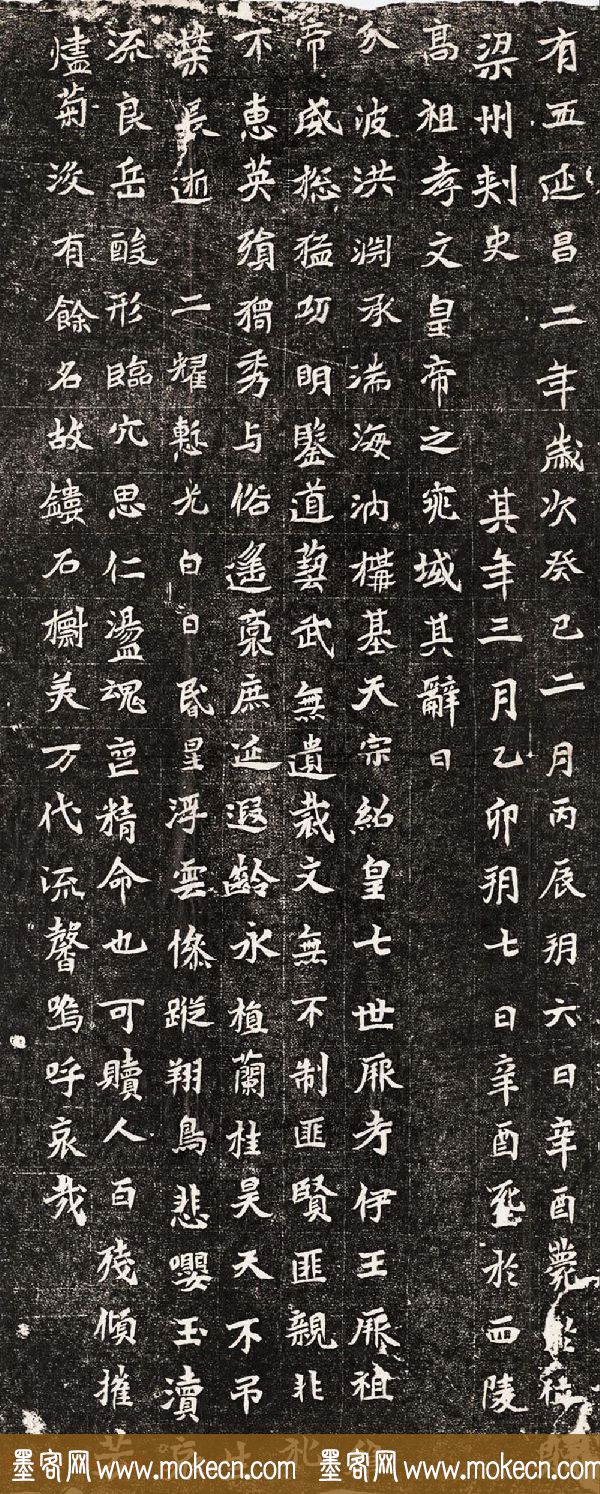 有五延昌二年歲次癸巳二月丙辰朔六日辛酉薨於
梁州刺史 其年三月乙卯朔七日辛酉於西陵
高祖孝文皇帝之兆域其辭曰
分波洪淵承湍海汭構基天宗紹皇七世厥考伊王厥祖
帝威惣猛功明鑒道藝武無遺裁文無不制匪賢匪親非
不惠英殞獨秀与俗遥稟庶延遐齡永植蘭桂昊天不弔
葉長逝 二耀慙光白日昏星浮雲慘蹤翔鳥悲嚶玉瀆
流良岳酸形臨穴思仁盪魂喪精命也可贖人百殘傾摧
燼菊没有餘名故鏤石美万代流馨嗚呼哀哉
墨客网 www.mokecn.com 墨客网 www.mokecn.com